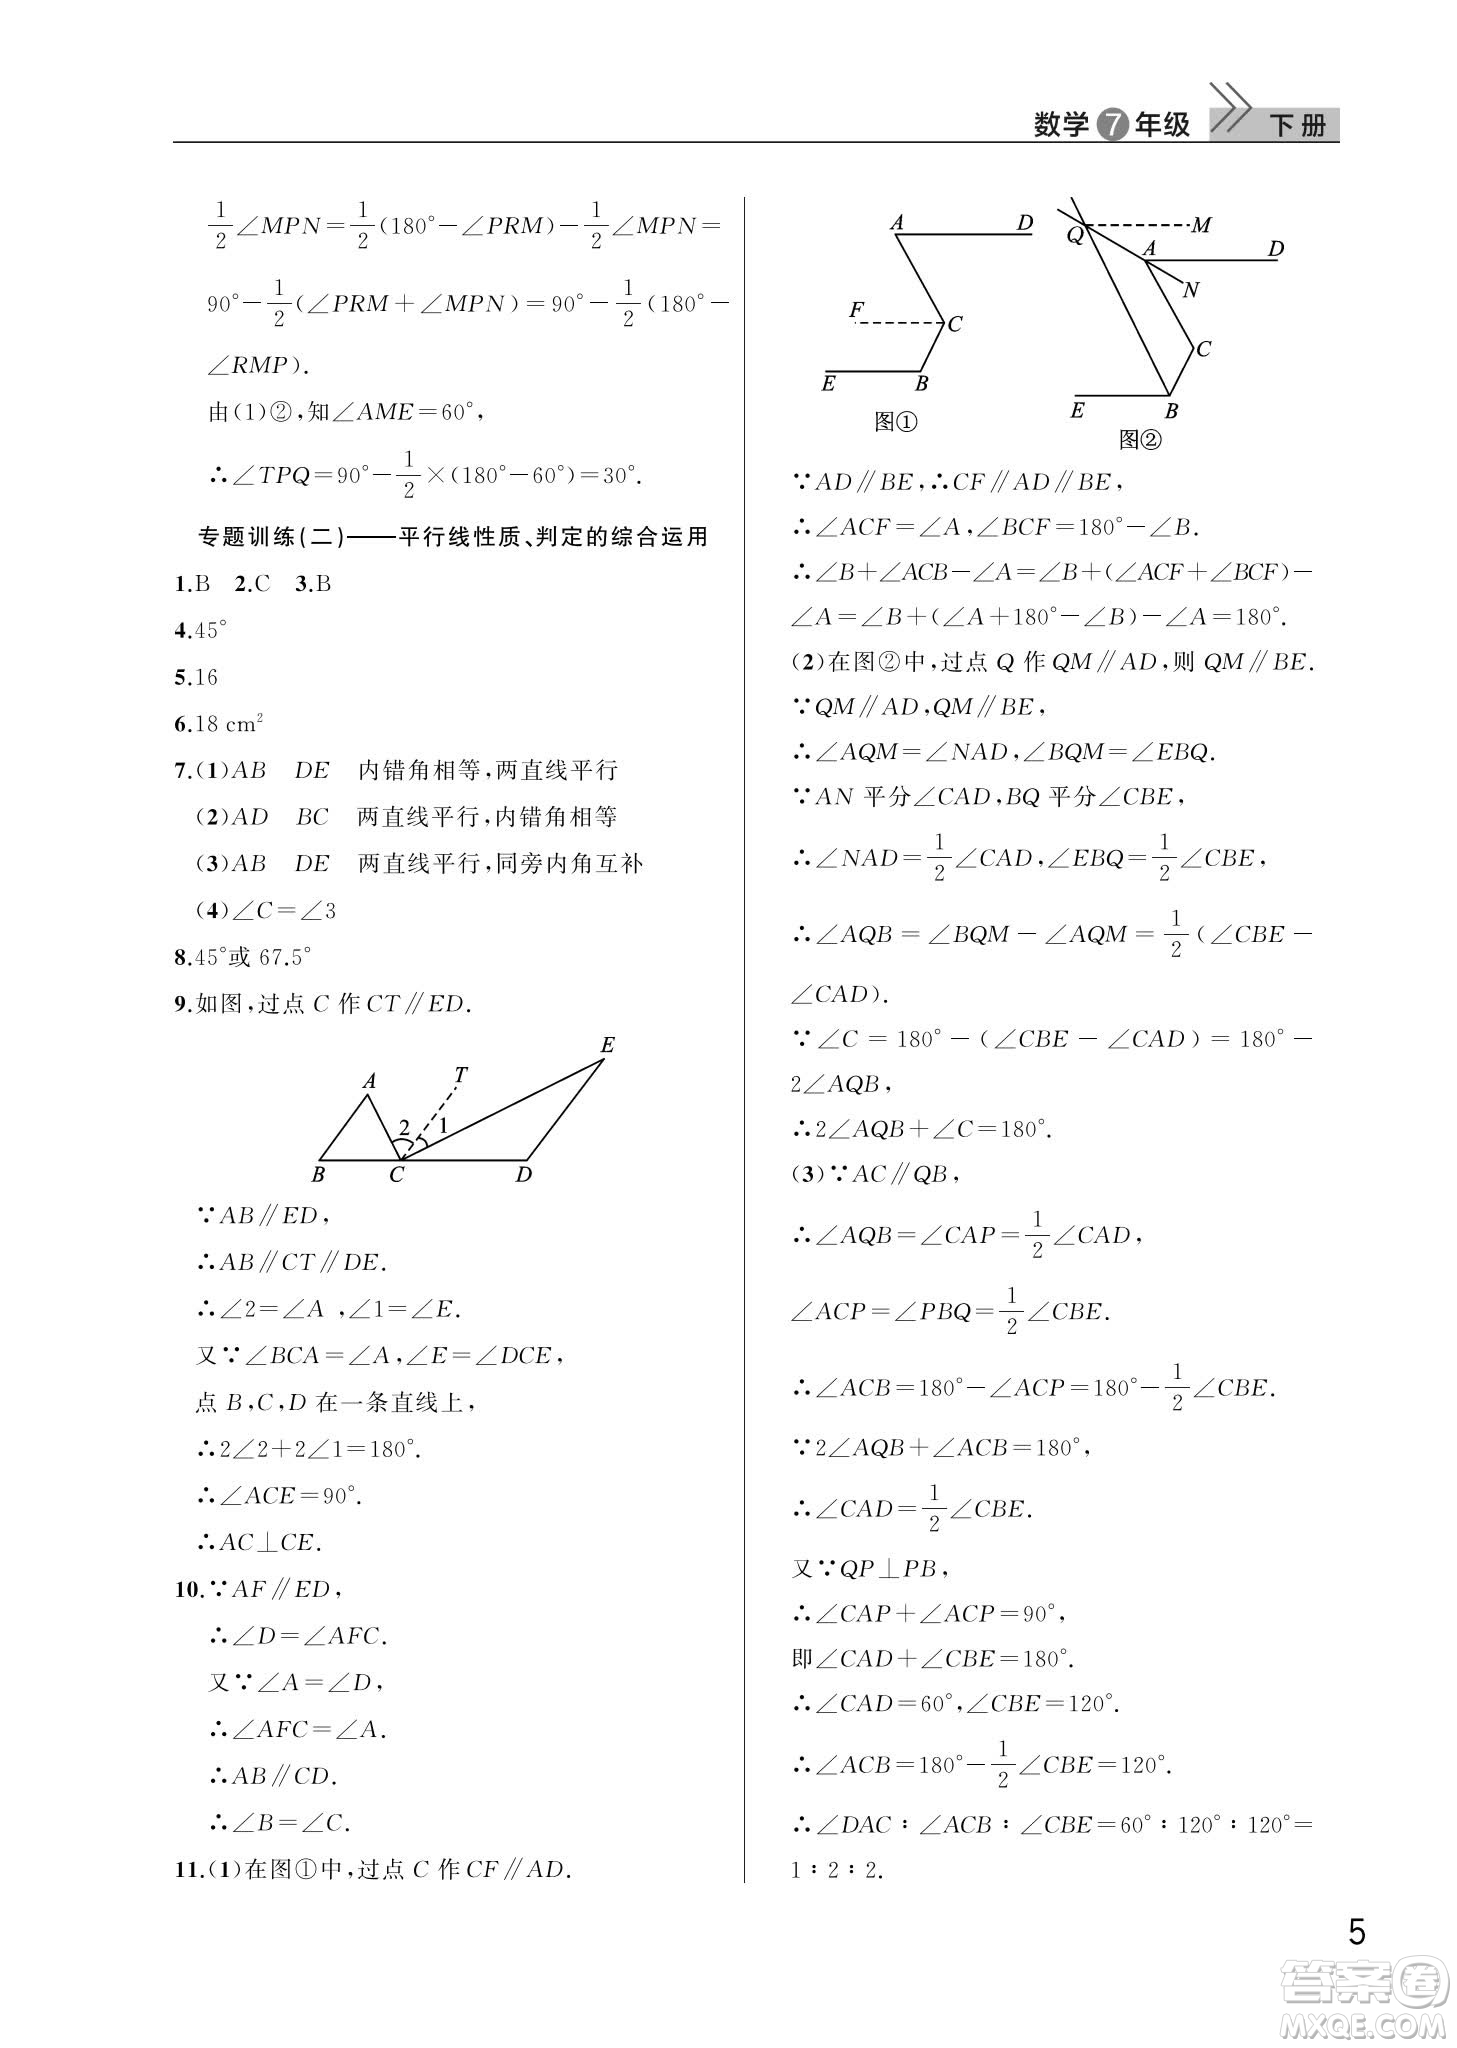 数学7年级 下册
1/2∠MPN=1/2(180°-∠PRM)-1/2∠MPN=
90°-1/2(∠PRM+∠MPN)=90°-1/2(180°-
∠RMP).
由(1)②,知∠AME=60°,
∴∠TPQ=90°-1/2×(180°-60°)=30°.
专题训练(二)——平行线性质、判定的综合运用
1.B 2.C 3.B
4.45°
5.16
6.18 cm²
7.(1)AB DE 内错角相等,两直线平行
(2)AD BC 两直线平行,内错角相等
(3)AB DE 两直线平行,同旁内角互补
(4)∠C=∠3
8.45°或 67.5°
9.如图,过点 C 作 CT∥ED.
E
T
A
2 1
B C D
∵AB∥ED,
∴AB∥CT∥DE.
∴∠2=∠A ,∠1=∠E.
又∵∠BCA=∠A,∠E=∠DCE,
点 B,C,D 在一条直线上,
∴2∠2+2∠1=180°.
∴∠ACE=90°.
∴AC⊥CE.
10.∵AF∥ED,
∴∠D=∠AFC.
又∵∠A=∠D,
∴∠AFC=∠A.
∴AB∥CD.
∴∠B=∠C.
11.(1)在图①中,过点 C 作 CF∥AD.
A D
F C
E B
图①
Q M
A D
N
C
E B
图②
∵AD∥BE,∴CF∥AD∥BE,
∴∠ACF=∠A,∠BCF=180°-∠B.
∴∠B+∠ACB-∠A=∠B+(∠ACF+∠BCF)-
∠A=∠B+(∠A+180°-∠B)-∠A=180°.
(2)在图②中,过点 Q 作 QM∥AD,则 QM∥BE.
∵QM∥AD,QM∥BE,
∴∠AQM=∠NAD,∠BQM=∠EBQ.
∵AN 平分∠CAD,BQ 平分∠CBE,
∴∠NAD=1/2∠CAD,∠EBQ=1/2∠CBE,
∴∠AQB=∠BQM-∠AQM=1/2(∠CBE-
∠CAD).
∵∠C=180°-(∠CBE-∠CAD)=180°-
2∠AQB,
∴2∠AQB+∠C=180°.
(3)∵AC∥QB,
∴∠AQB=∠CAP=1/2∠CAD,
∠ACP=∠PBQ=1/2∠CBE.
∴∠ACB=180°-∠ACP=180°-1/2∠CBE.
∵2∠AQB+∠ACB=180°,
∴∠CAD=1/2∠CBE.
又∵QP⊥PB,
∴∠CAP+∠ACP=90°,
即∠CAD+∠CBE=180°.
∴∠CAD=60°,∠CBE=120°.
∴∠ACB=180°-1/2∠CBE=120°.
∴∠DAC∶∠ACB∶∠CBE=60°∶120°∶120°=
1∶2∶2.
5
答案圈
MXQE.COM